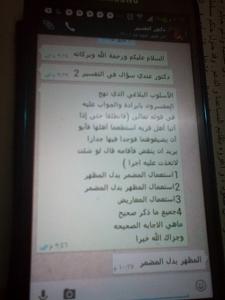 دكتور التفسير
السلام عليكم ورحمة الله وبركاته
دكتور عندي سؤال في التفسير 2
الأسلوب البلاغي الذي نهج
المفسرون بايرادة والجواب عليه
في قولة تعالى (فانطلقا حتى إذا
اتيا أهل قرية استطعما أهلها فأبو
ان يضيفوهما فوجدا فيها جدارا
يريد ان ينقض فأقامه قال لو شئت
لاتخذت عليه اجرا )
1استعمال المضمر بدل المظهر
2استعمال المظهر بدل المضمر
3استعمال المعاريض
4جميع ما ذكر صحيح
ماهي الاجابة الصحيحه
وجزاك الله خيرا
المظهر بدل المضمر